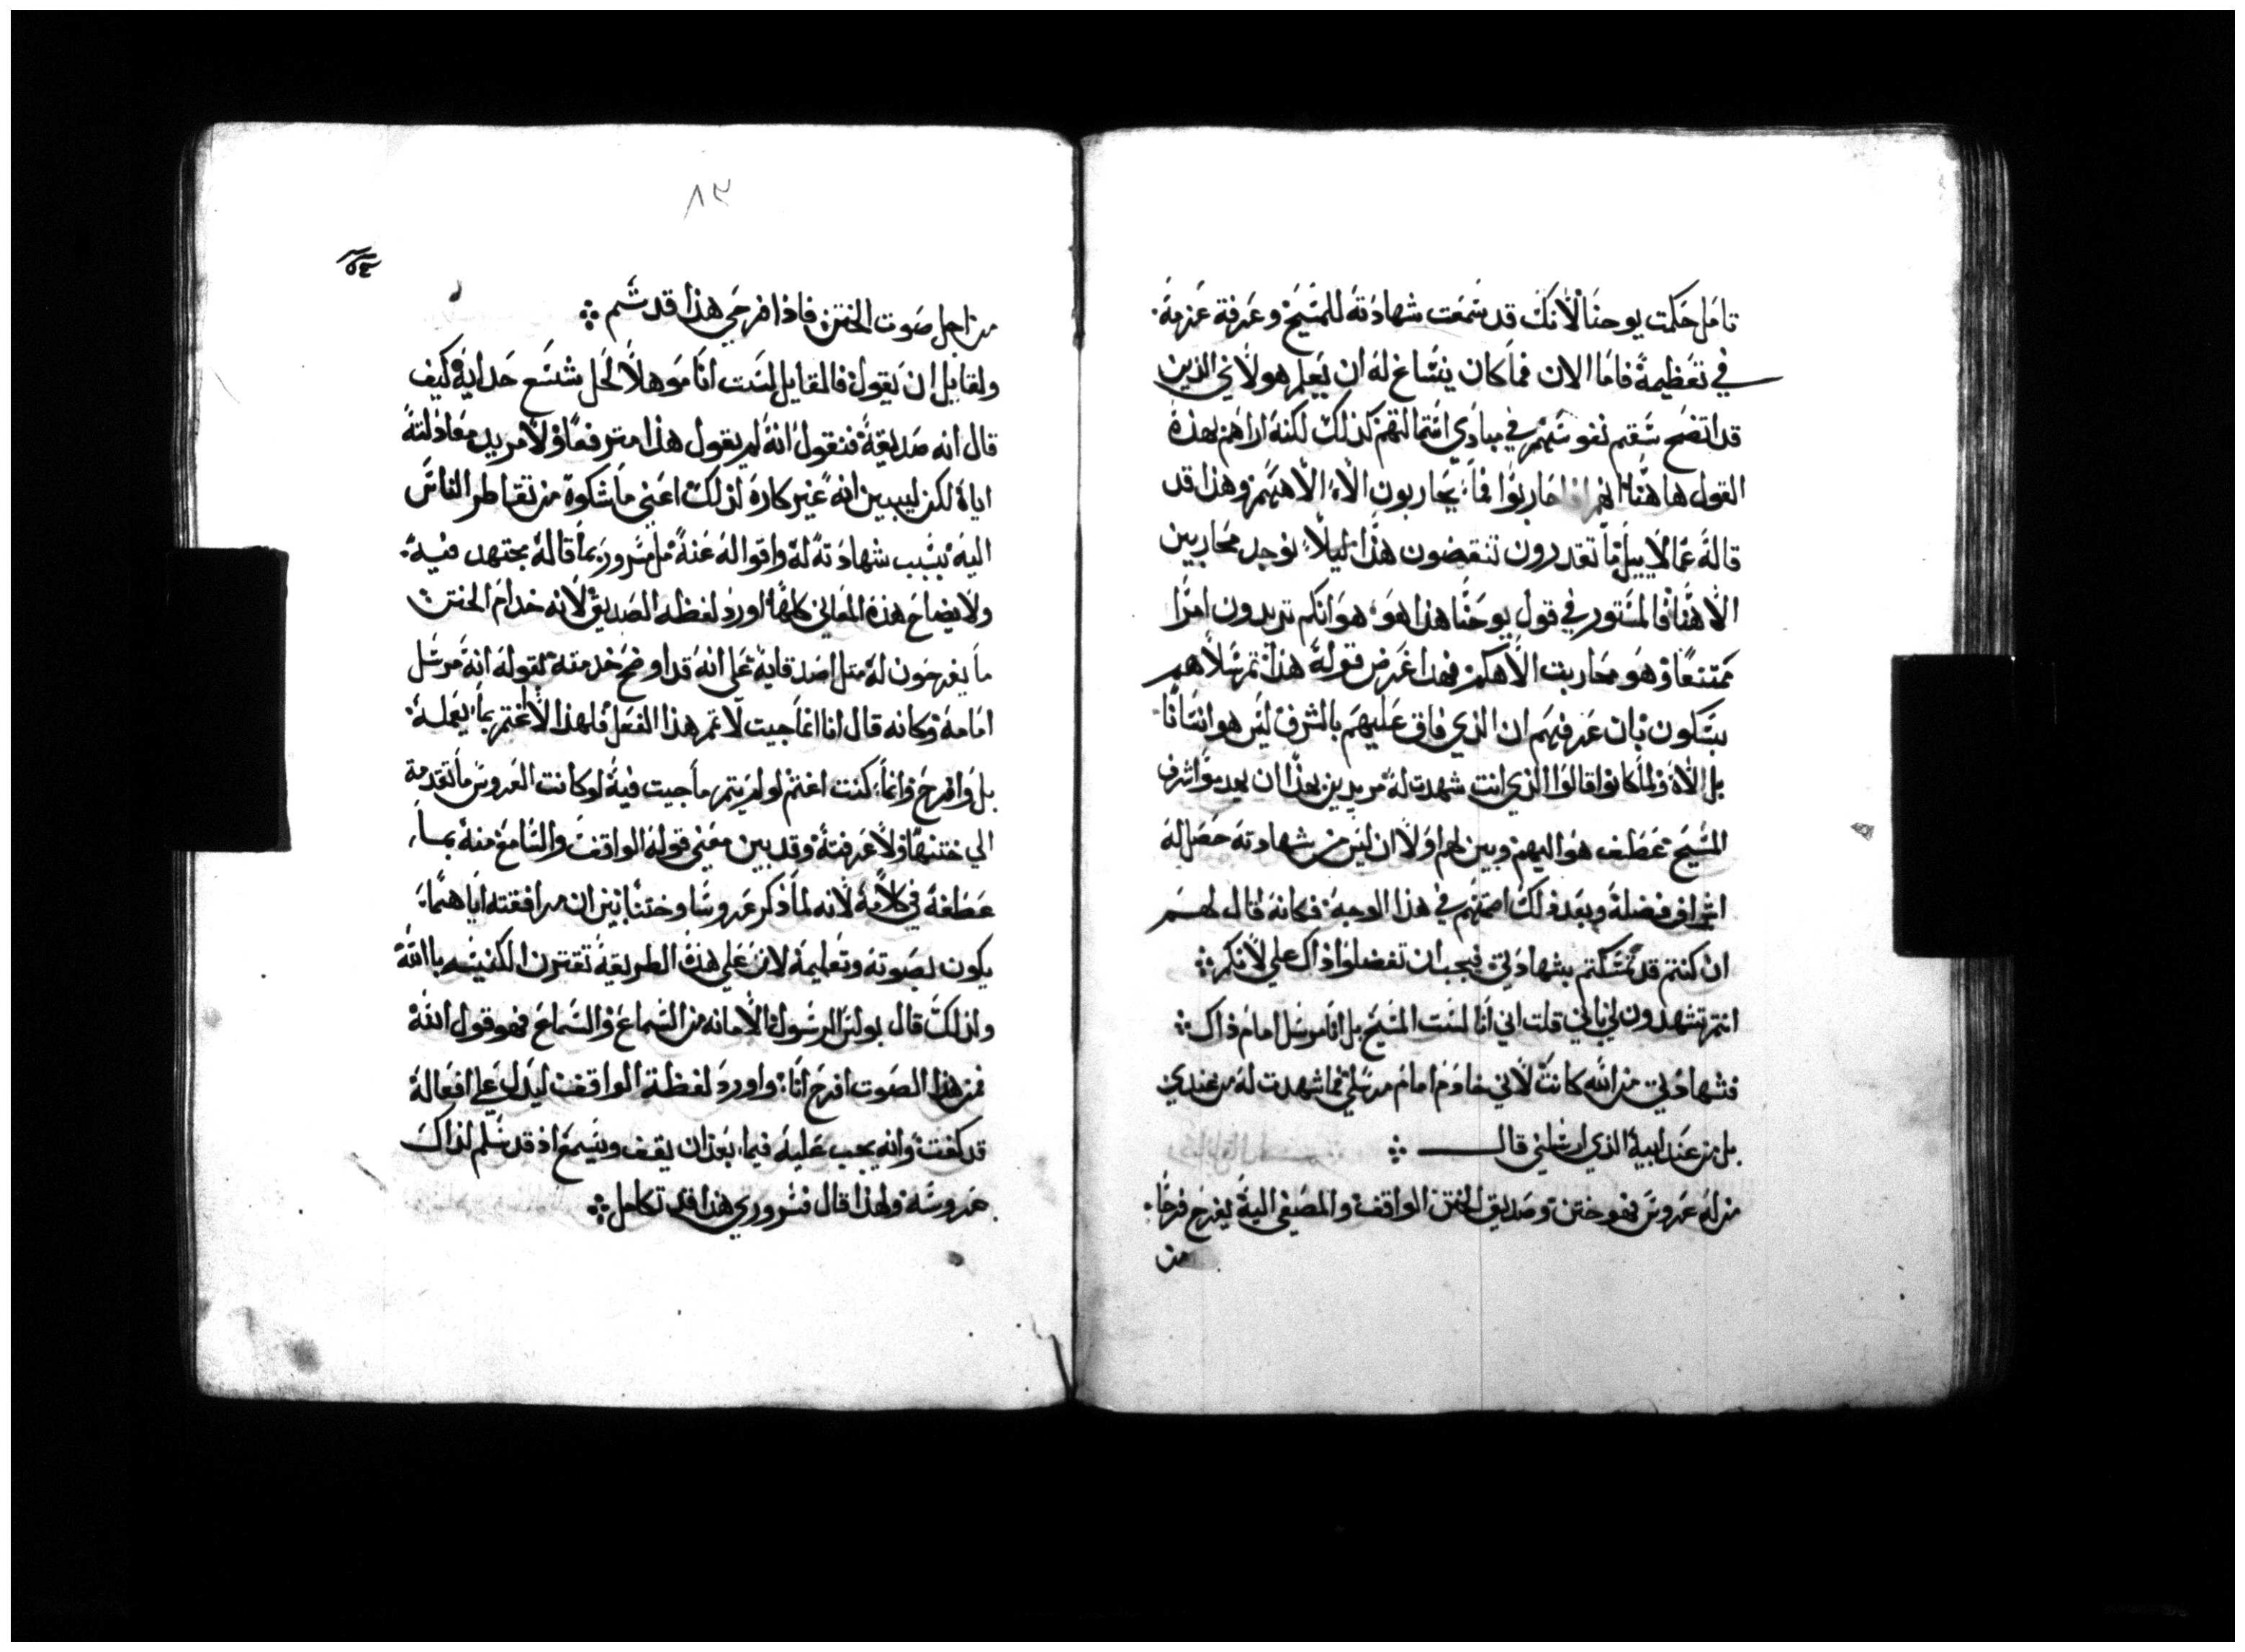 تامل حكمت يوحنا لانك قد سمعت شهادته للمسيح وعرفة عزمه
في تعظيمة فاما الان فما كان ينساغ له ان يعلم هولاي الذين
قد اتضح سقم نفوسهم في مبادي ائتمالتهم كذلك لكنه اراهم بهذة
القول هاهنا انهم اذا حاربوا فما يحاربون الاه الاههم وهذا قد
قاله غمالاييل ما تقدرون تنقضون هذا ليلا يوجد محاربين
الاهنا فالمستور في قول يوحنا هذا هو هو انكم تريدون امرا
ممتنعا وهو محاربت الاهكم فهذا غرض قوله هذا ثم يتلاهم
بتكون بان عرفهم ان الذي فاق عليهم بالشرف ليس هو انسانا
بل الاه ولما كانوا قالوا الذي انت شهدت له مريدين بهذا ان يهدموا شرف
المسيح عطف هو اليهم وبين لهم اولا ان ليس من شهادته حصل له
اشراق فضله وبعد ذلك اصمتهم في هذا الوجه فكانه قال لهم
ان كنتم قد تمسكتم بشهادتي فيجب ان تفضلوا ذاك علي لانكم
انتم تشهدون لي باني قلت اني انا لست المسيح بل انا مرسل امام ذاك
فشهادتي من الله كانت لاني خادم امام مرسلي فما شهدت له من عندي
بل من عند ابية الذي ارسلني قال
من له عروس فهو ختن وصديق الختن الواقف والمصغي الية يفرح فرحا
من
٨٢
من اجل صوت الختن فاذا فرحي هذا قد تم
ولقايل ان يقول فالقايل لست انا موهلا لحل شسع حدايه كيف
قال انه صديقة فنقول انه لم يقول هذا مترفعا ولا مريد معادلته
اياه لكن ليبين انه غير كاره لذلك اعني ما شكوة من تقاطر الناس
اليه بسبب شهادته له واقواله عنه بل مسرور بما قاله مجتهد فيه
ولايضاح هذه المعاني كلها اورد لفظه الصديق لانه خدام الختن
ما يفرحون له مثل اصدقايه علي انه قد اوضح خدمته لقوله انه مرسل
امامه وكانه قال انا انما جيت لا تمر هذا الفعل فلهذا لا اغتم بما يعمله
بل وافرح وانما كنت اغتم لو لم يتم ما جيت فيه لو كانت العروس ما تقدمة
الي ختنها ولا عرفته وقد بين معني قوله الواقف والسامع منه بما
عطفه في كلامه لانه لما ذكر عروسا وختنا بين ان مرافقته اياهما
يكون بصوته وتعليمه لان علي هذه الطريقة تقترن الكنيسه بالله
ولذلك قال بولس الرسول الامانه من السماع والسماع فهو قول الله
فمن هذا الصوت افرح انا واورد لفظة الواقف ليدل علي افعاله
قد كفت وانه يجب عليه فيما بعد ان يقف ويسمع اذ قد سلم لذاك
عروسه ولهذا قال فسروري هذا قد تكامل